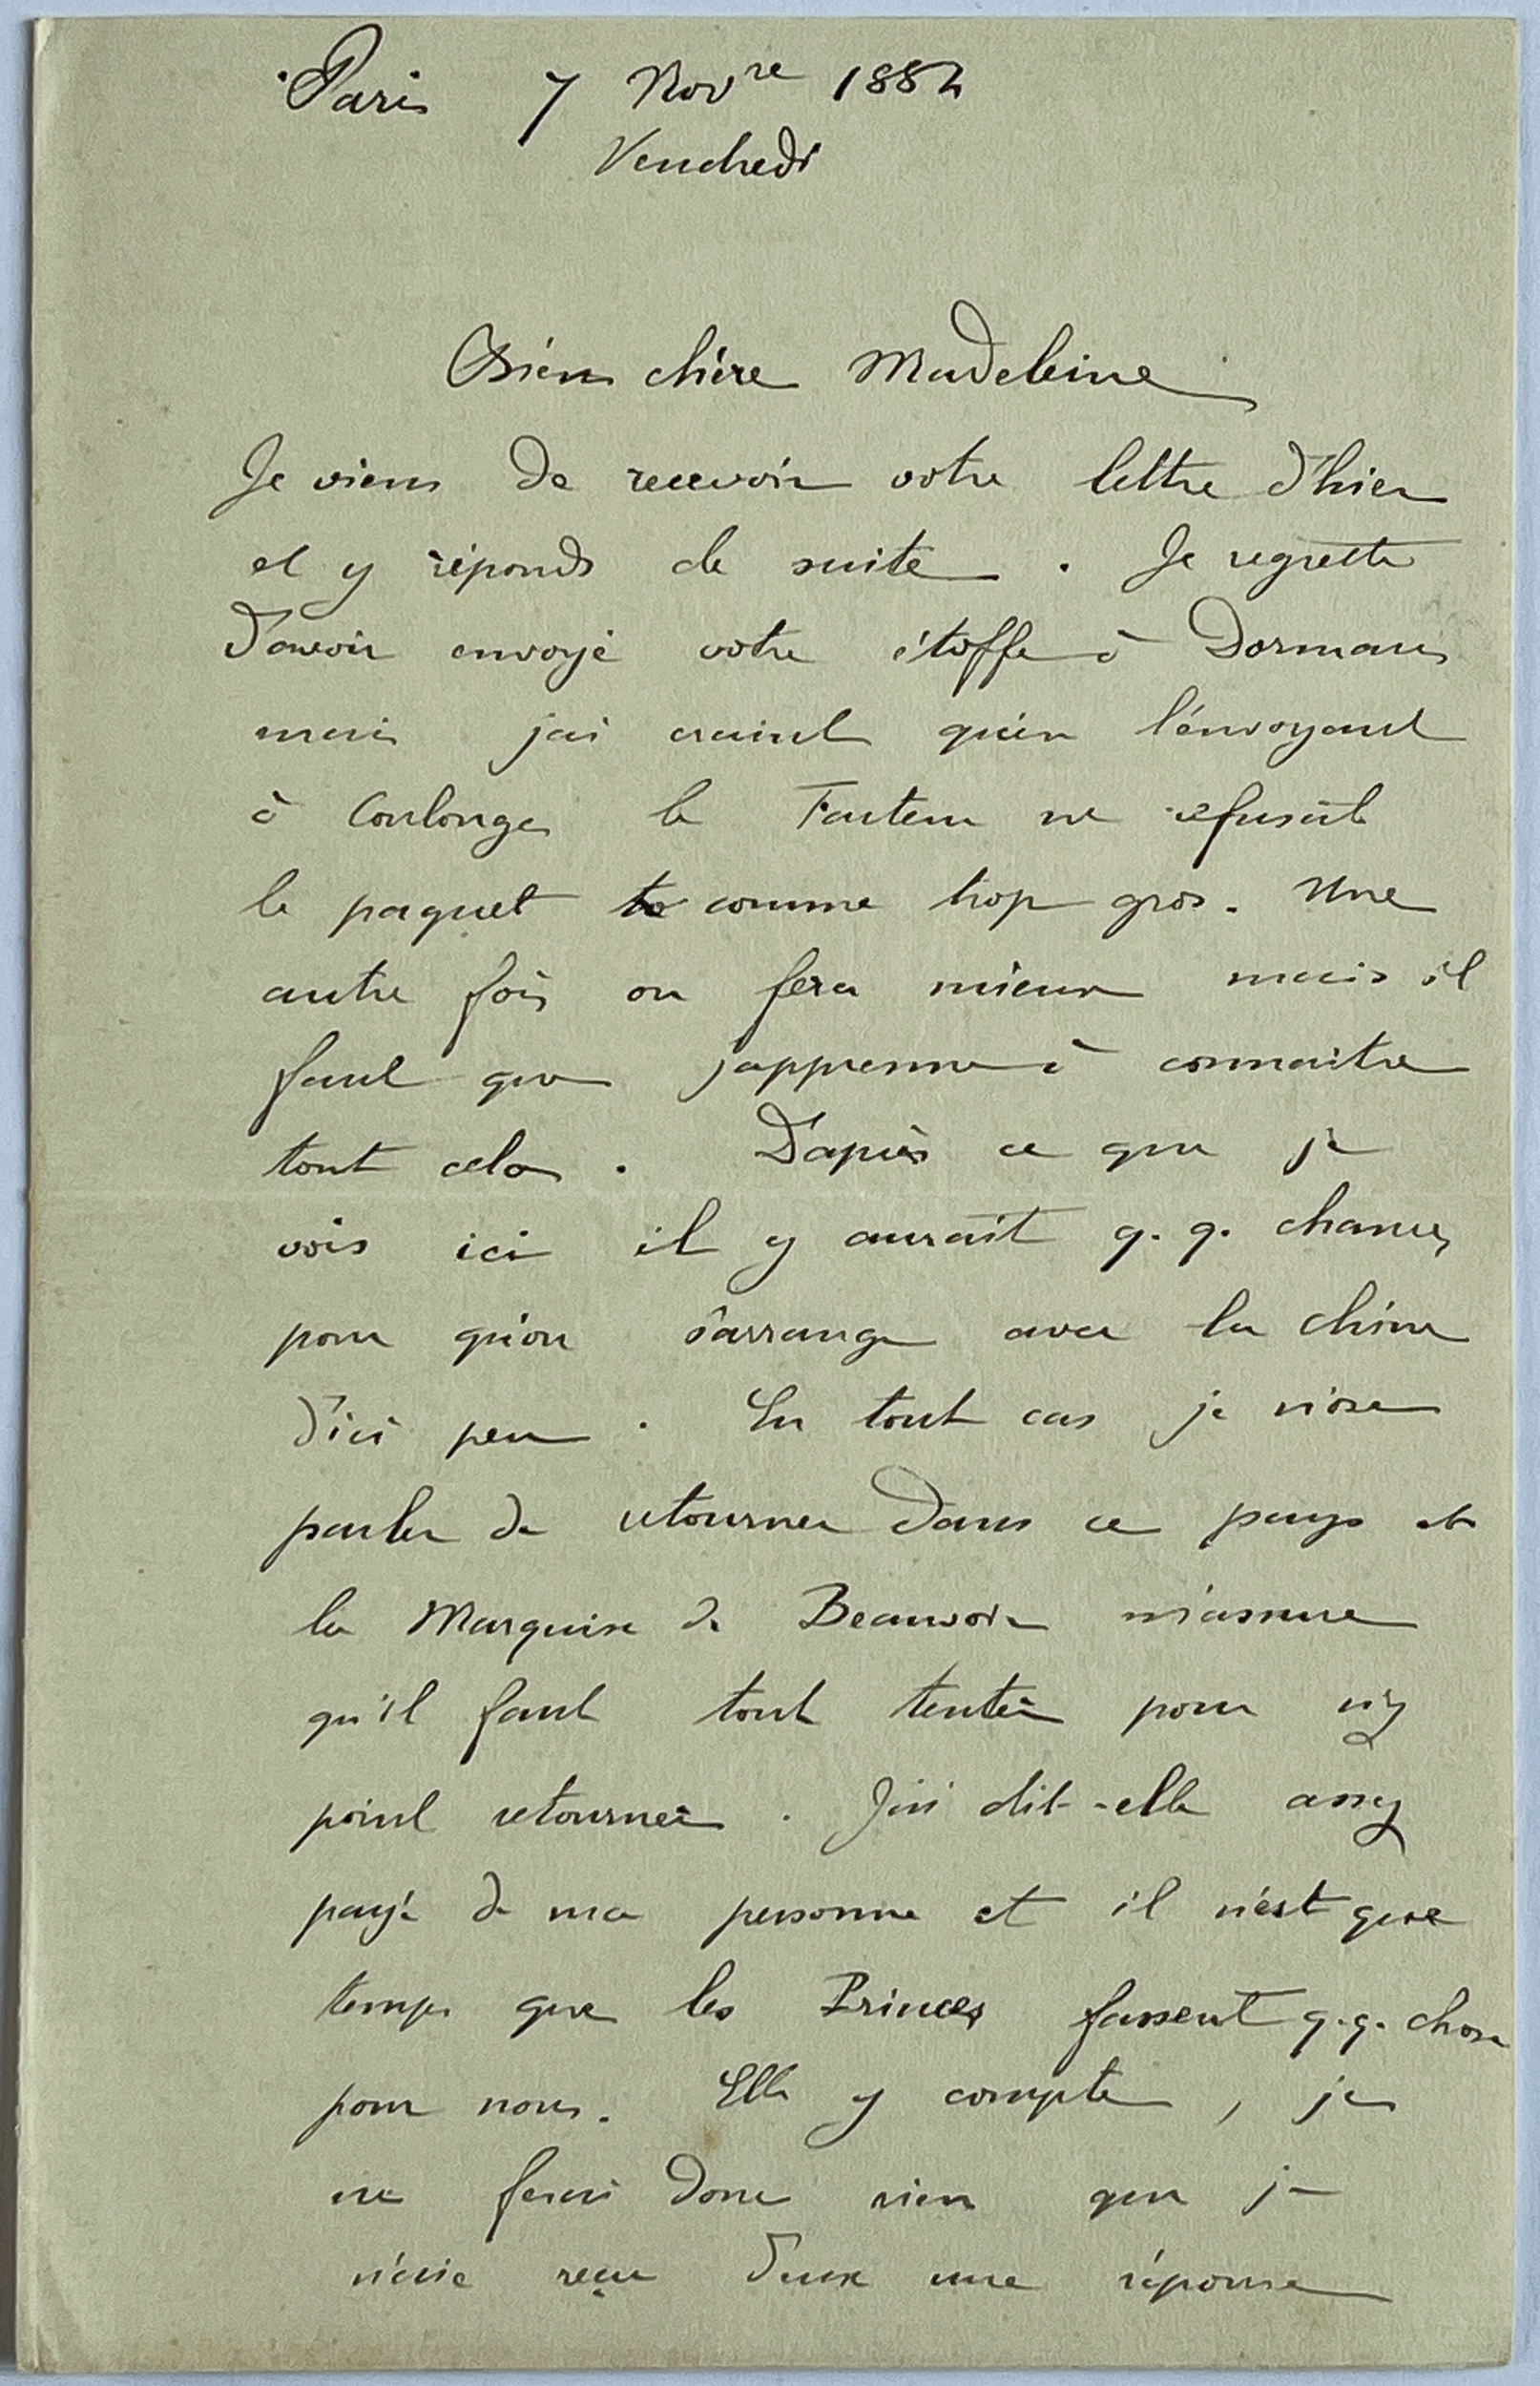 Paris 7 Nov^re 1884
Vendredi
Bien chère Madeleine
Je viens de recevoir votre lettre d'hier
et y réponds de suite. Je regrette
d'avoir envoyé votre étoffe à Dormans
mais j'ai craint qu'en l'envoyant
à Coulonges le Facteur ne refusât
le paquet comme trop gros. Une
autre fois on fera mieux mais il
faut que j'apprenne à connaitre
tout cela. D'après ce que je
vois ici il y aurait q.q. chances
pour qu'on s'arrange avec la Chine
d'ici peu. En tout cas je n'ose
parler de retourner dans ce pays et
la Marquise de Beauvoir m'assure
qu'il faut tout tenter pour n'y
point retourner. J'ai dit-elle assez
payé de ma personne et il n'est que
temps que les Princes fassent q.q. chose
pour nous. Elle y compte, je
ne ferai donc rien que je
n'aie reçu d'eux une réponse